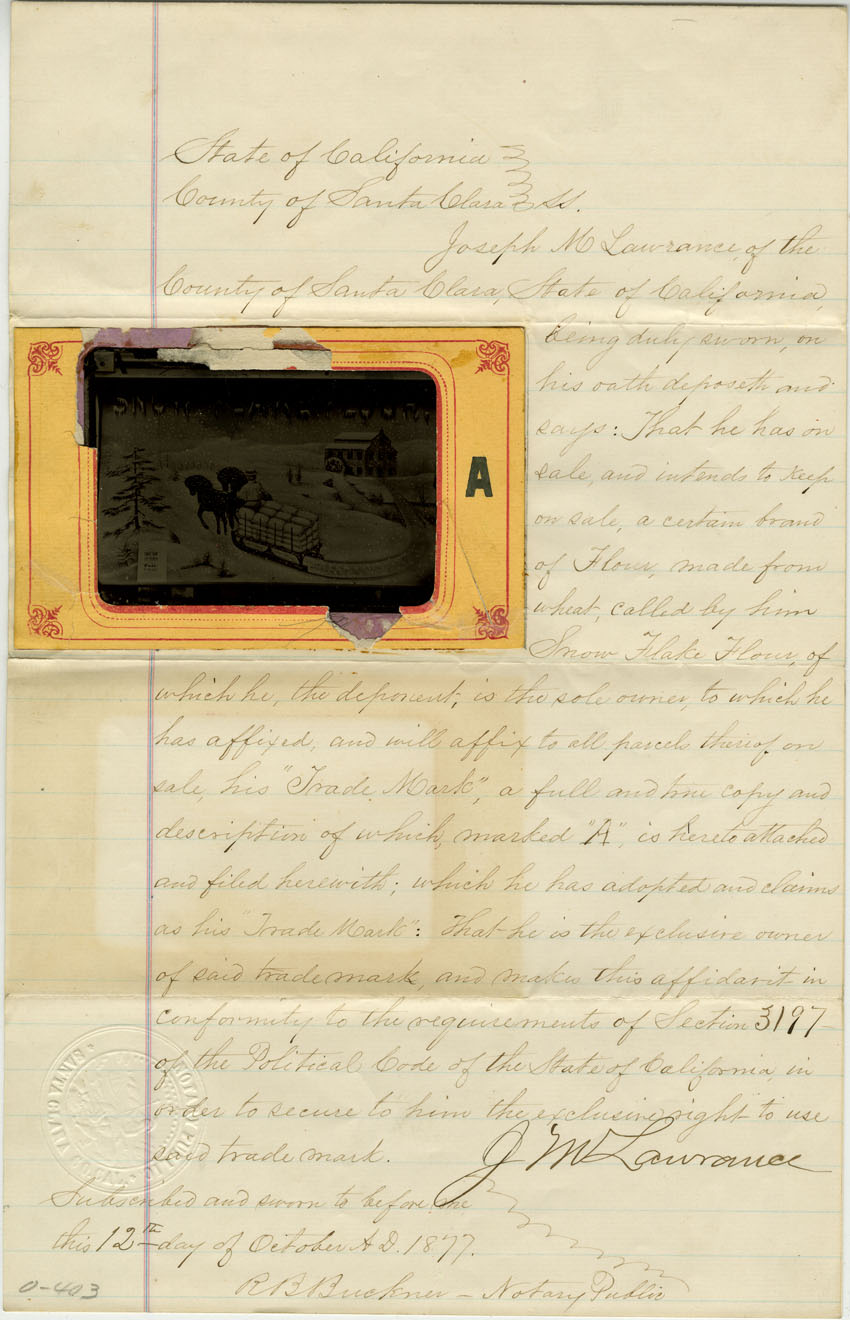 State of California
County of Santa Clara ss.
Joseph M Lawrance, of the
County of Santa Clara, State of California,
being duly sworn, on
his oath deposeth and
says: That he has on
sale, and intends to keep
on sale, a certain brand
of Flour, made from
wheat, called by him
Snow Flake Flour, of
SNOW FLAKE FLOUR.
A
which he, the deponent, is the sole owner, to which he
has affixed, and will affix to all parcels thereof on
sale, his "Trade Mark", a full and true copy and
description of which, marked "A", is hereto attached
and filed herewith; which he has adopted and claims
as his "Trade Mark": That he is the exclusive owner
of said trade mark, and makes this affidavit in
conformity to the requirements of Section 3197
of the Political Code of the State of California, in
order to secure to him the exclusive right to use
said trade mark.
J M Lawrance
NOTARY PUBLIC
SANTA CLARA CO. CAL.
Subscribed and sworn to before me
this 12th day of October A.D. 1877.
R B Buckner - Notary Public
0-403